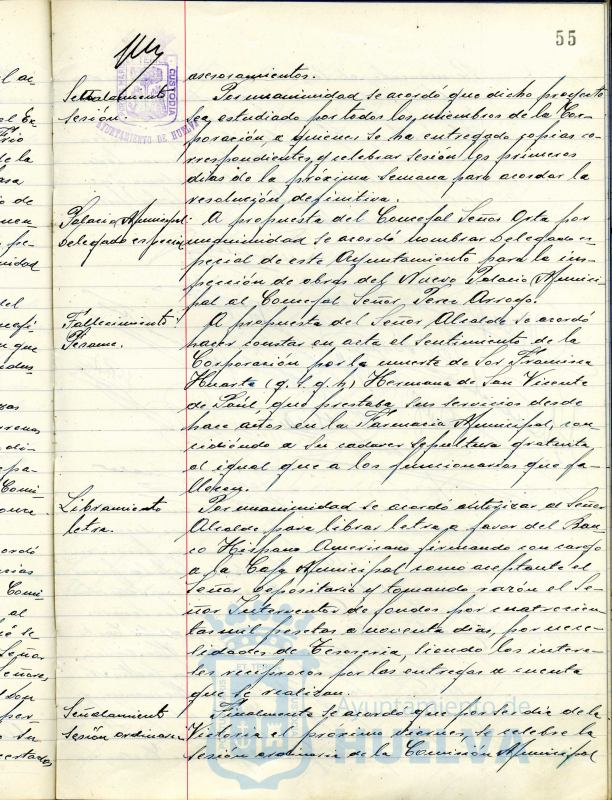 55
asesoramientos.
Señalamiento
Sesión.
Por unanimidad se acordó que dicho proyecto
sea estudiado por todos los miembros de la Cor-
poración, a quienes se ha entregado copias co-
rrespondientes, y celebrar sesión los primeros
dias de la próxima semana para acordar la
resolución definitiva.
Palacio Municipal.
Delegado especial
A propuesta del Concejal Señor Orta por
unanimidad se acordó nombrar Delegado es-
pecial de este Ayuntamiento para la ins-
pección de obras del Nuevo Palacio Munici-
pal al Concejal Señor Perez Arroyo.
Fallecimiento
Pésame.
A propuesta del Señor Alcalde se acordó
hacer constar en acta el sentimiento de la
Corporación por la muerte de Sor Francisca
Huarta (q. e. g. h) Hermana de San Vicente
de Paúl que prestaba sus servicios desde
hace años en la Farmacia Municipal, con
cidiéndo a su cadaver sepultura gratuita
al igual que a los funcionarios que fa-
llecen.
Libramiento
letra.
Por unanimidad se acordó autorizar al Señor
Alcalde para librar letra a favor del Ban-
co Hispano Americano firmando con cargo
a la Caja Municipal como aceptante el
Señor Depositario y tomando razón el Se-
ñor Interventor de fondos por cuatrocien
tas mil pesetas a noventa dias, por nece-
sidades de Tesoreria, siendo los intere-
ses reciprocos por las entregas a cuenta
que se realizan.
Señalamiento
Sesión ordinaria
Finalmente se acordó que por ser dia de la
Victoria el próximo viernes, se celebre la
sesión ordinaria de la Comisión Municipal
CUSTODIA
AYUNTAMIENTO DE HUELVA
Ayuntamiento de
HUELVA